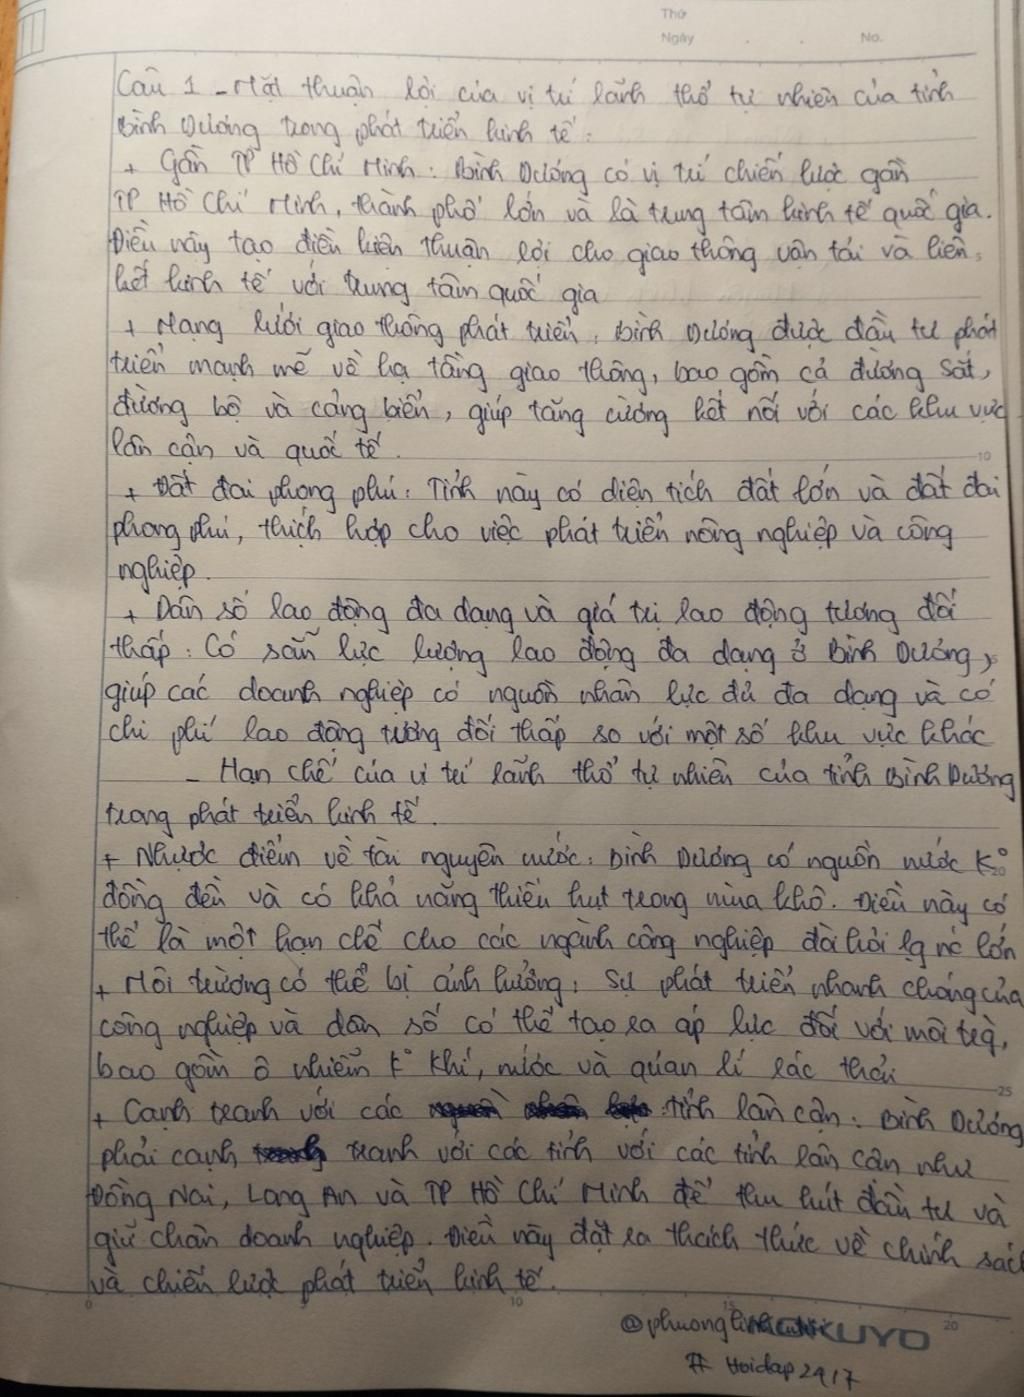 Thứ
Ngày . . No.
Câu 1 - Mặt thuận lợi của vị trí lãnh thổ tự nhiên của tỉnh
Bình Dương trong phát triển kinh tế:
+ Gần TP Hồ Chí Minh: Bình Dương có vị trí chiến lược gần
TP Hồ Chí Minh, thành phố lớn và là trung tâm kinh tế quốc gia.
Điều này tạo điều kiện thuận lợi cho giao thông vận tải và liên
kết kinh tế với trung tâm quốc gia
+ Mạng lưới giao thông phát triển: Bình Dương được đầu tư phát
triển mạnh mẽ về hạ tầng giao thông, bao gồm cả đường sắt,
đường bộ và cảng biển, giúp tăng cường kết nối với các khu vực
lân cận và quốc tế.
10
+ Đất đai phong phú: Tỉnh này có diện tích đất lớn và đất đai
phong phú, thích hợp cho việc phát triển nông nghiệp và công
nghiệp.
+ Dân số lao động đa dạng và giá trị lao động tương đối
thấp: Có sẵn lực lượng lao động đa dạng ở Bình Dương,
giúp các doanh nghiệp có nguồn nhân lực đủ đa dạng và có
chi phí lao động tương đối thấp so với một số khu vực khác
- Hạn chế của vị trí lãnh thổ tự nhiên của tỉnh Bình Dương
trong phát triển kinh tế.
+ Nhược điểm về tài nguyên nước: Bình Dương có nguồn nước K°
20
đồng đều và có khả năng thiếu hụt trong mùa khô. Điều này có
thể là một hạn chế cho các ngành công nghiệp đòi hỏi lg nc lớn
+ Môi trường có thể bị ảnh hưởng: Sự phát triển nhanh chóng của
công nghiệp và dân số có thể tạo ra áp lực đối với môi trg,
bao gồm ô nhiễm K° khí, nước và quản lí rác thải
25
+ Cạnh tranh với các tỉnh lân cận: Bình Dương
phải cạnh tranh với các tỉnh với các tỉnh lân cận như
Đồng Nai, Long An và TP Hồ Chí Minh để thu hút đầu tư và
giữ chân doanh nghiệp. Điều này đặt ra thách thức về chính sách
và chiến lược phát triển kinh tế.
0 10 15 20
KOKUYO
# Hoidap2417